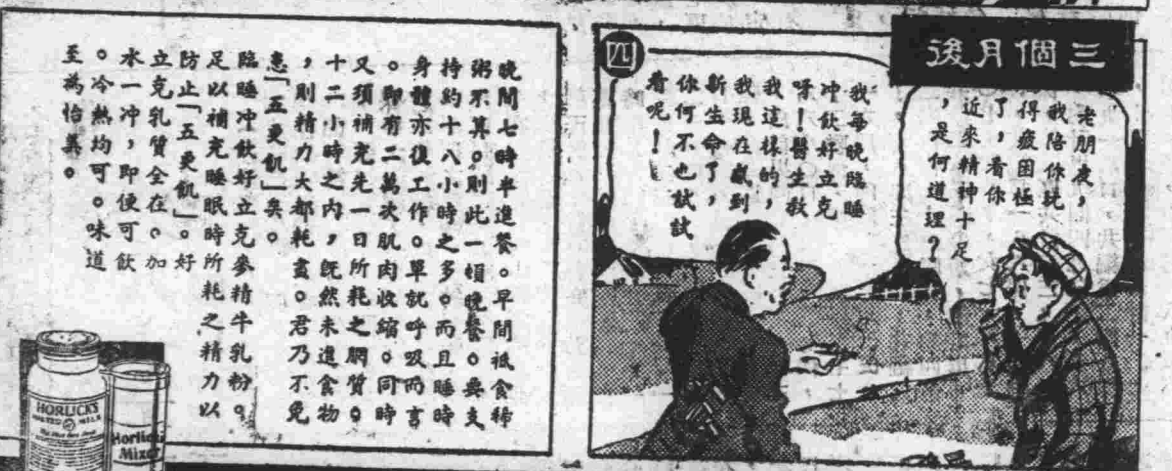 三個月後
四
老朋友，
我陪你玩
得疲困極
了，看你
近來精神十足
，是何道理？
我每晚臨睡
冲飲好立克
呀！醫生教
我這樣的，
我現在感到
新生命了，
你何不也試試
看呢！
晚間七時半進餐。早間祇食稀
粥不算。則此一頓晚餐。要支
持約十八小時之多。而且睡時
身體亦復工作。單就呼吸而言
。即有二萬次肌肉收縮。同時
又須補充先一日所耗之質。
十二小時之內，既然未進食物
，則精力大都耗盡。君乃不免
患「五更飢」矣。
臨睡冲飲好立克麥精牛乳粉。
足以補充睡眠時所耗之精力以
防止「五更飢」。好
立克乳質全在。加
水一冲，即便可飲
。冷熱均可。味道
至為怡美。
HORLICK'S
MALTED MILK
Horlick's
Mixer